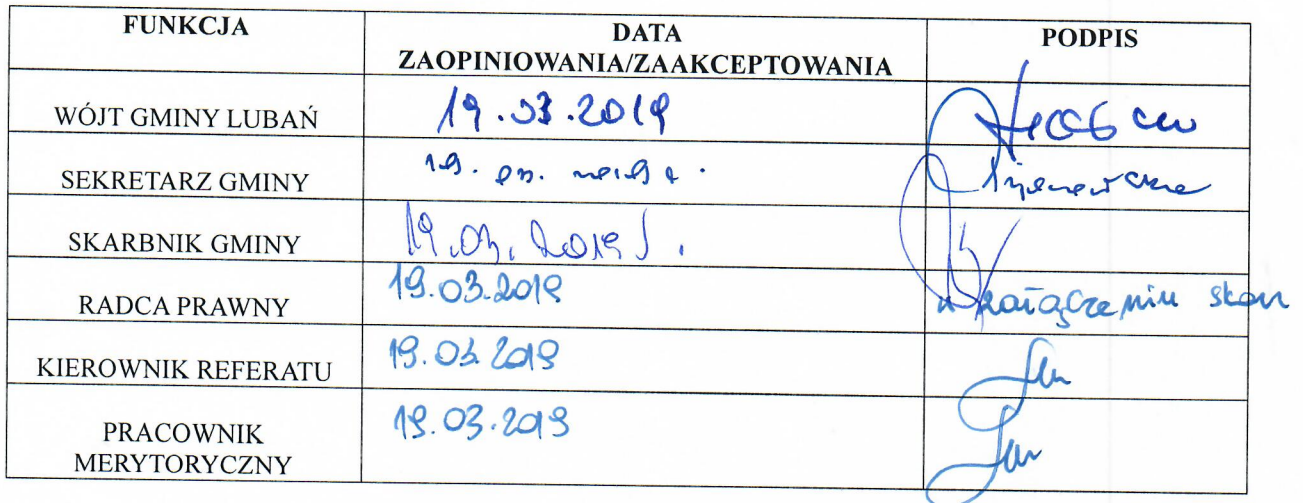 FUNKCJA
DATA
ZAOPINIOWANIA/ZAAKCEPTOWANIA
PODPIS
WÓJT GMINY LUBAŃ
19.03.2019
SEKRETARZ GMINY
SKARBNIK GMINY
19.03.2019 r.
RADCA PRAWNY
19.03.2019
w załączeniu skan
KIEROWNIK REFERATU
19.03.2019
PRACOWNIK
MERYTORYCZNY
19.03.2019